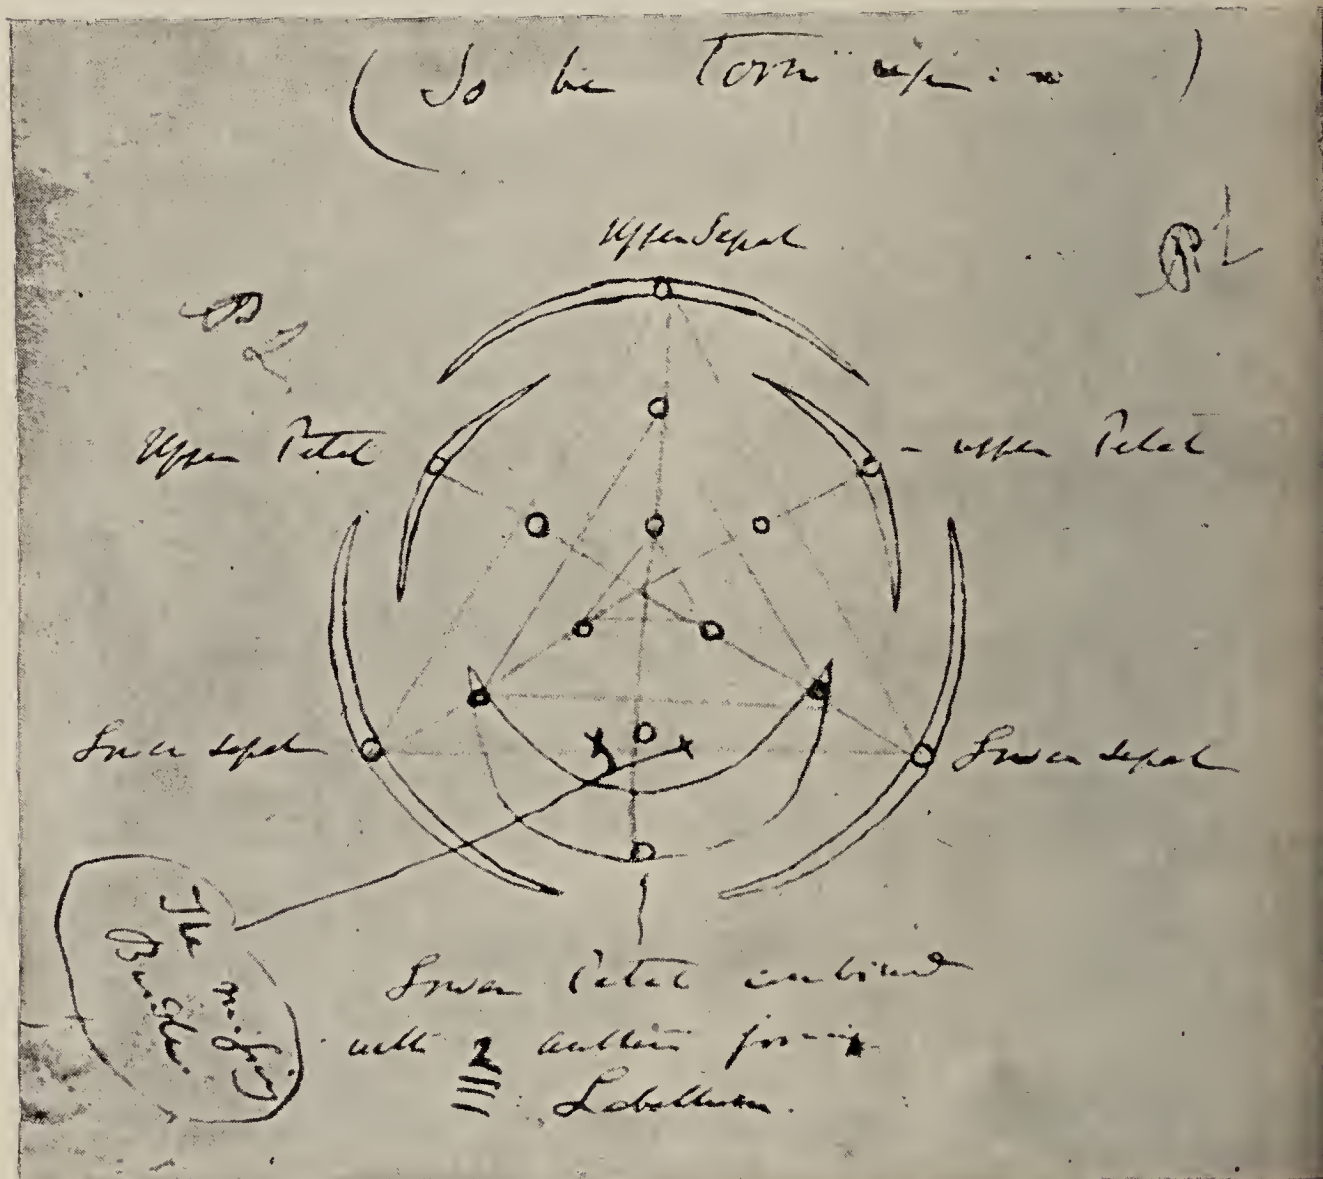 (To be Torn up)
Upper Sepal
Upper Petal
- upper Petal
Lower sepal
Lower sepal
The missing
Bundles.
Lower Petal combined
with 2 anthers forming
Labellum.